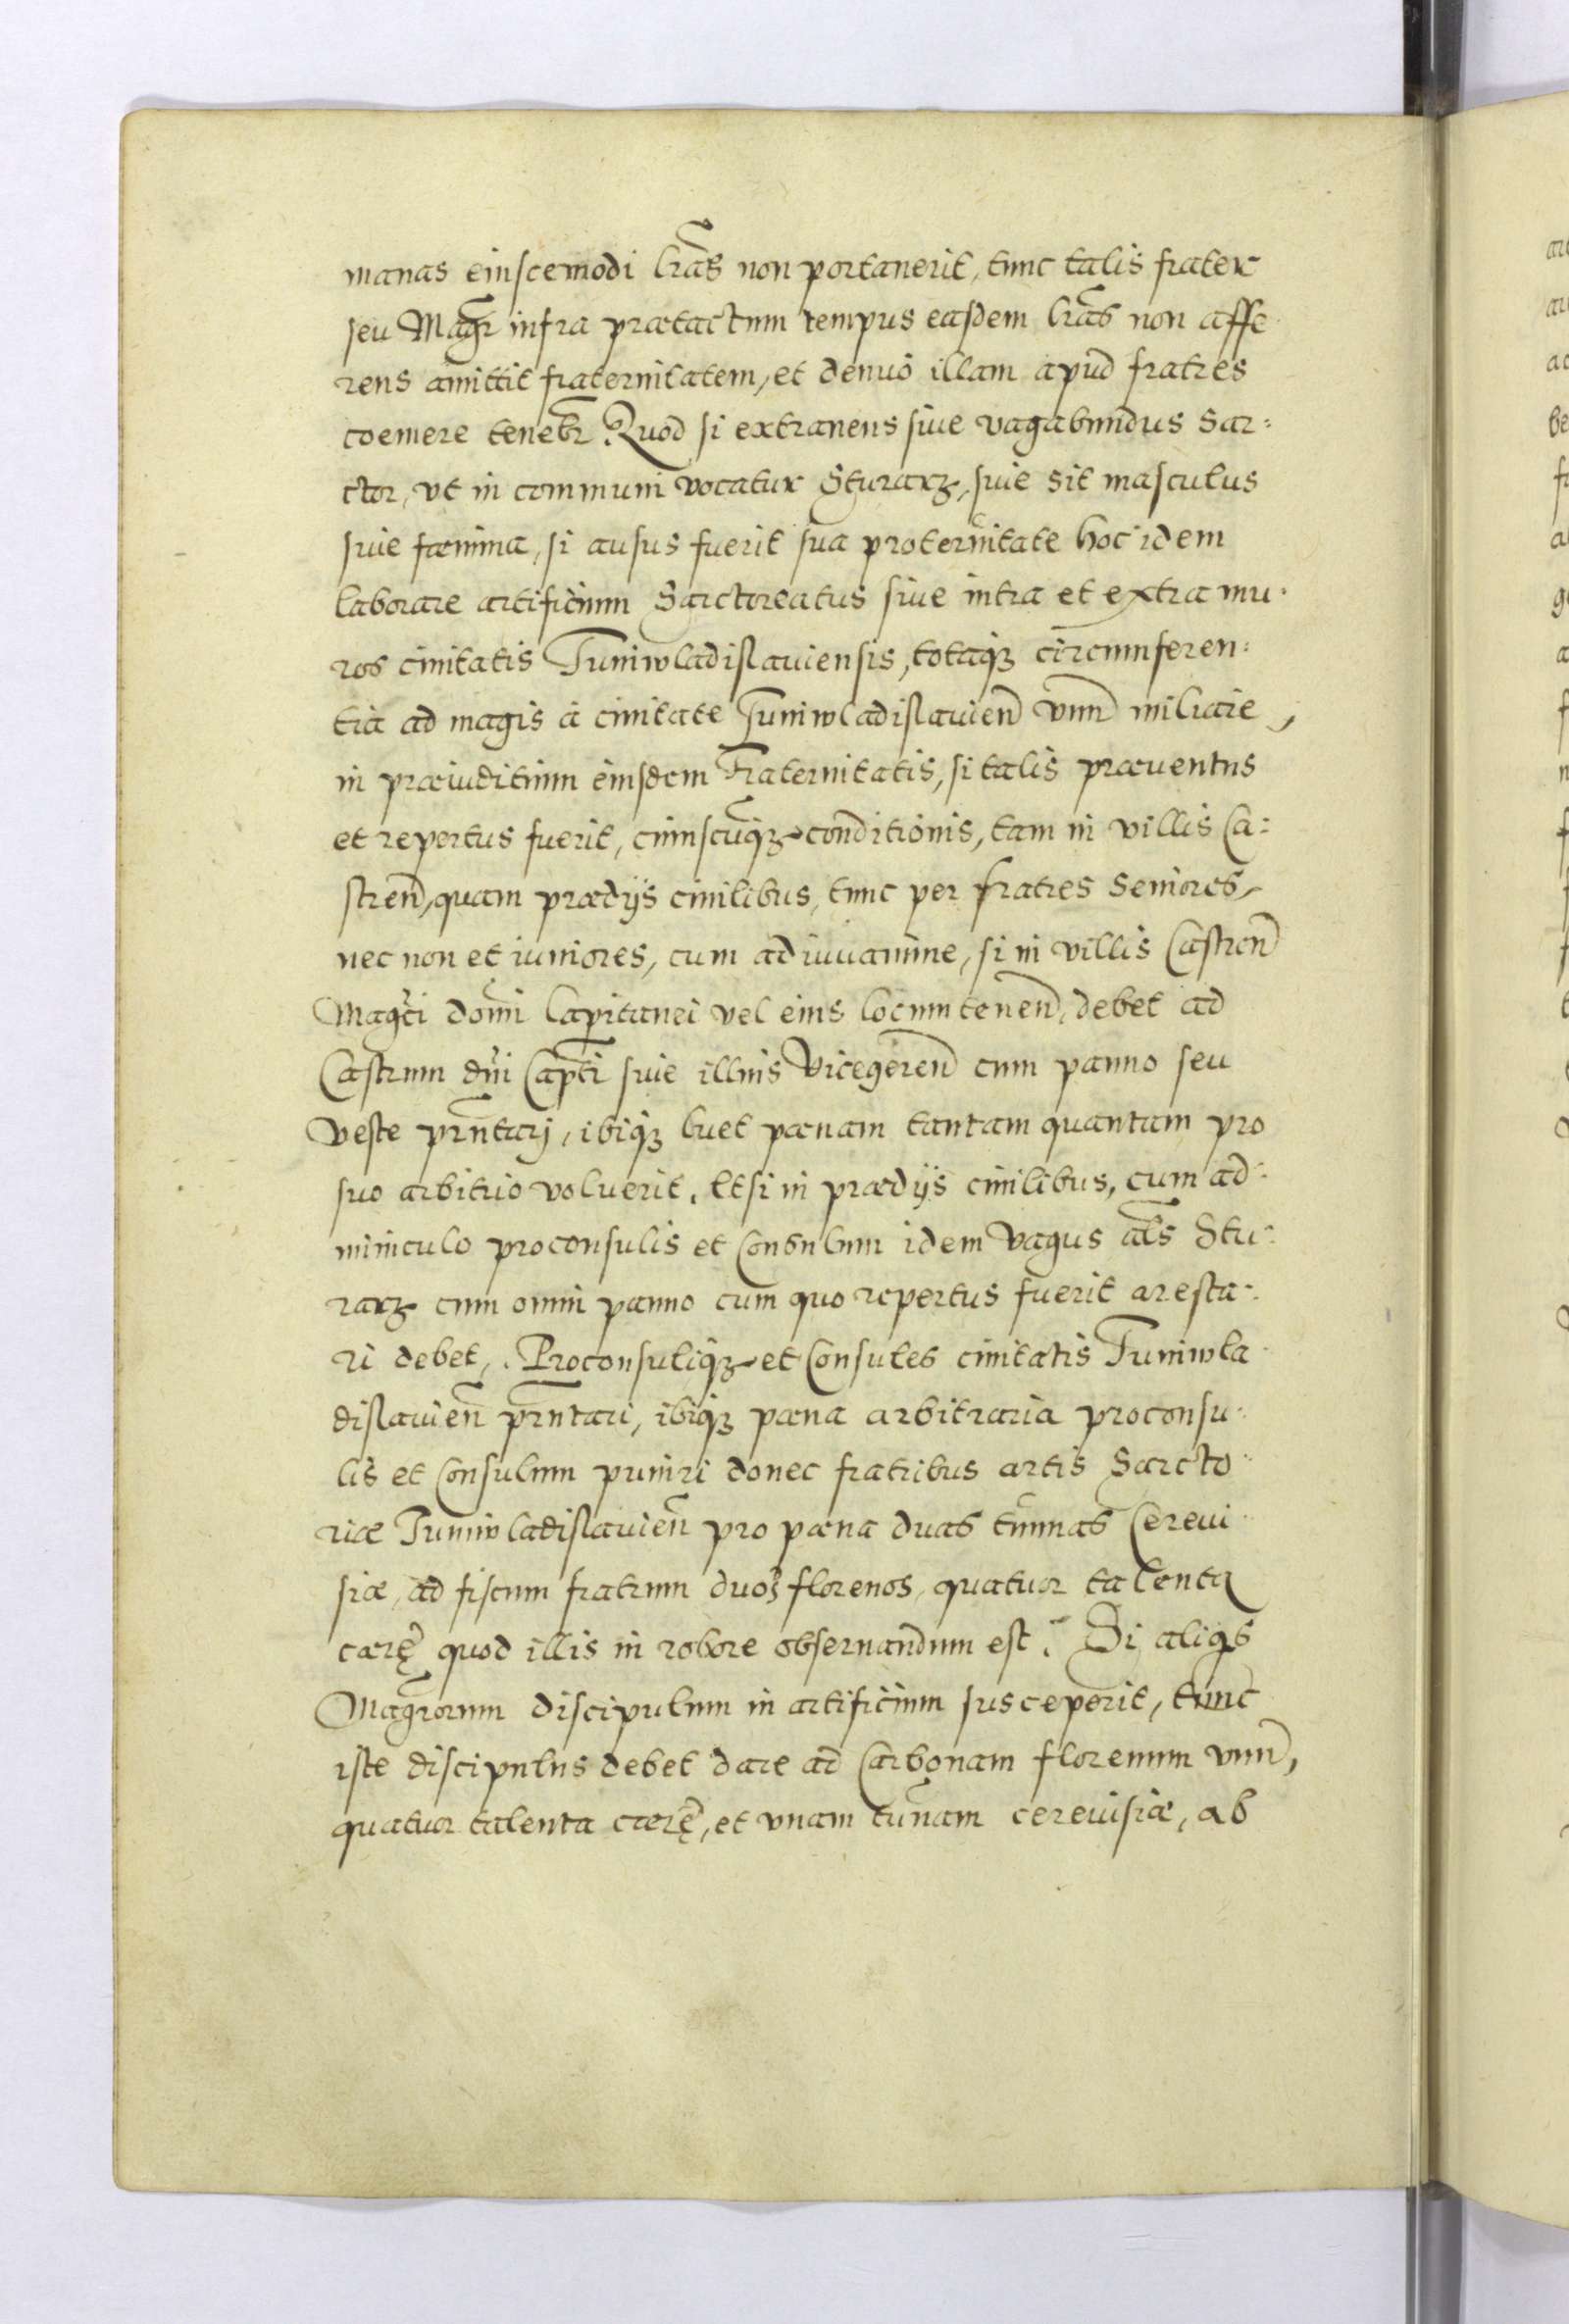 manas eiuscemodi lr̃as non portauerit, tunc talis frater
seu Mag̃r infra prætactum tempus easdem lr̃as non affe
rens amittit fraternitatem, et denuò illam apud fratres
coemere teneb̃r. Quod si extraneus siue vagabundus Sar:
ctor, vt in communi vocatur Sturarz, siue sit masculus
siue fœmina, si ausus fuerit sua proteruitate hoc idem
laborare artificium Sarctoreatus siue intra et extra mu:
ros ciuitatis Iuniwladislauiensis, totaq́ꝫ circumferen:
tia ad magis à ciuitate Iuniwladislauień vnũ miliare,
in præiuditium eiusdem Fraternitatis, si talis præuentus
et repertus fuerit, cuiuscũqꝫ conditionis, tam in villis Ca:
streń, quam prædijs ciuilibus, tunc per fratres Seniores,
nec non et iuniores, cum adiuuamine, si in villis Castreń
Magc̃i domĩ Capitanei vel eius locumteneñ, debet ad
Castrum dñi Capt̃i siue illius Vicegereñ cum panno seu
veste prñtarj, ibiqꝫ luet pœnam tantam quantam pro
suo arbitrio voluerit. Et si in prædijs ciuilibus, cum ad:
miniculo proconsulis et Consulum idem vagus al̃s Stu:
rarz cum omni panno cum quo repertus fuerit aresta:
ri debet, Proconsuliqꝫ et Consules ciuitatis Iuniwla
dislauieñ prñtari, ibiqꝫ pœna arbitraria proconsu:
lis et Consulum puniri donec fratribus artis Sarcto:
riæ Iuniwladislauieñ pro pœna duas tũnas Cereui:
siæ, ad fiscum fratrum duos florenos, quatuor talenta
cærę quod illis in robore obseruandum est. Si aliqs
Magr̃orum discipulum in artificium susceperit, tunc
iste discipulus debet dare ad Carbonam florenum vnũ,
quatuor talenta cærę, et vnam tũnam cereuisiæ, ab